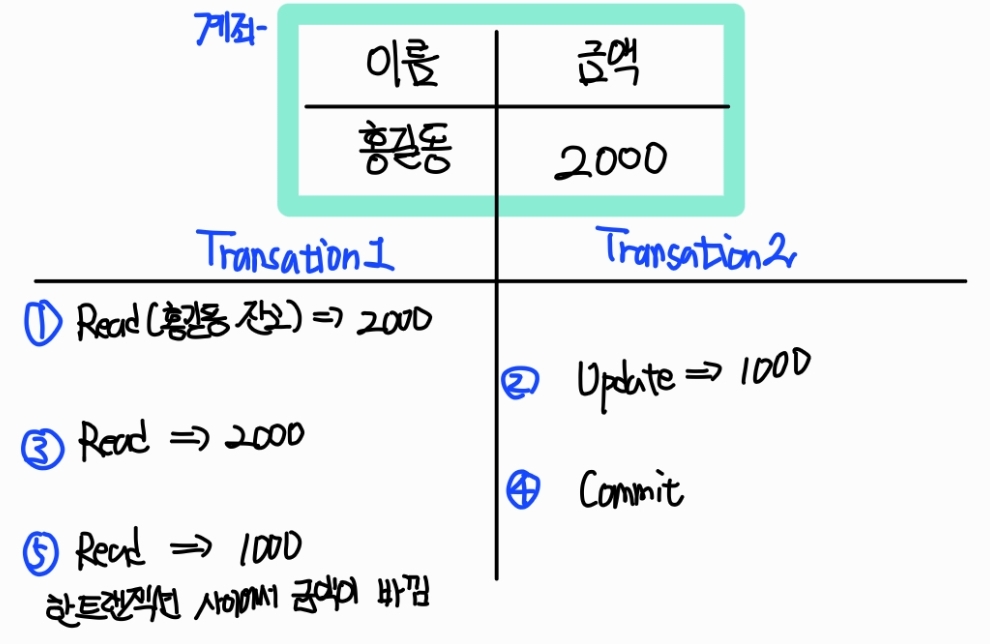 계좌-
이름 금액
홍길동 2000
Transation1 Transation2
① Read (홍길동 잔고) => 2000
② Update => 1000
③ Read => 2000
④ Commit
⑤ Read => 1000
한트랜잭션 사이에서 금액이 바낌